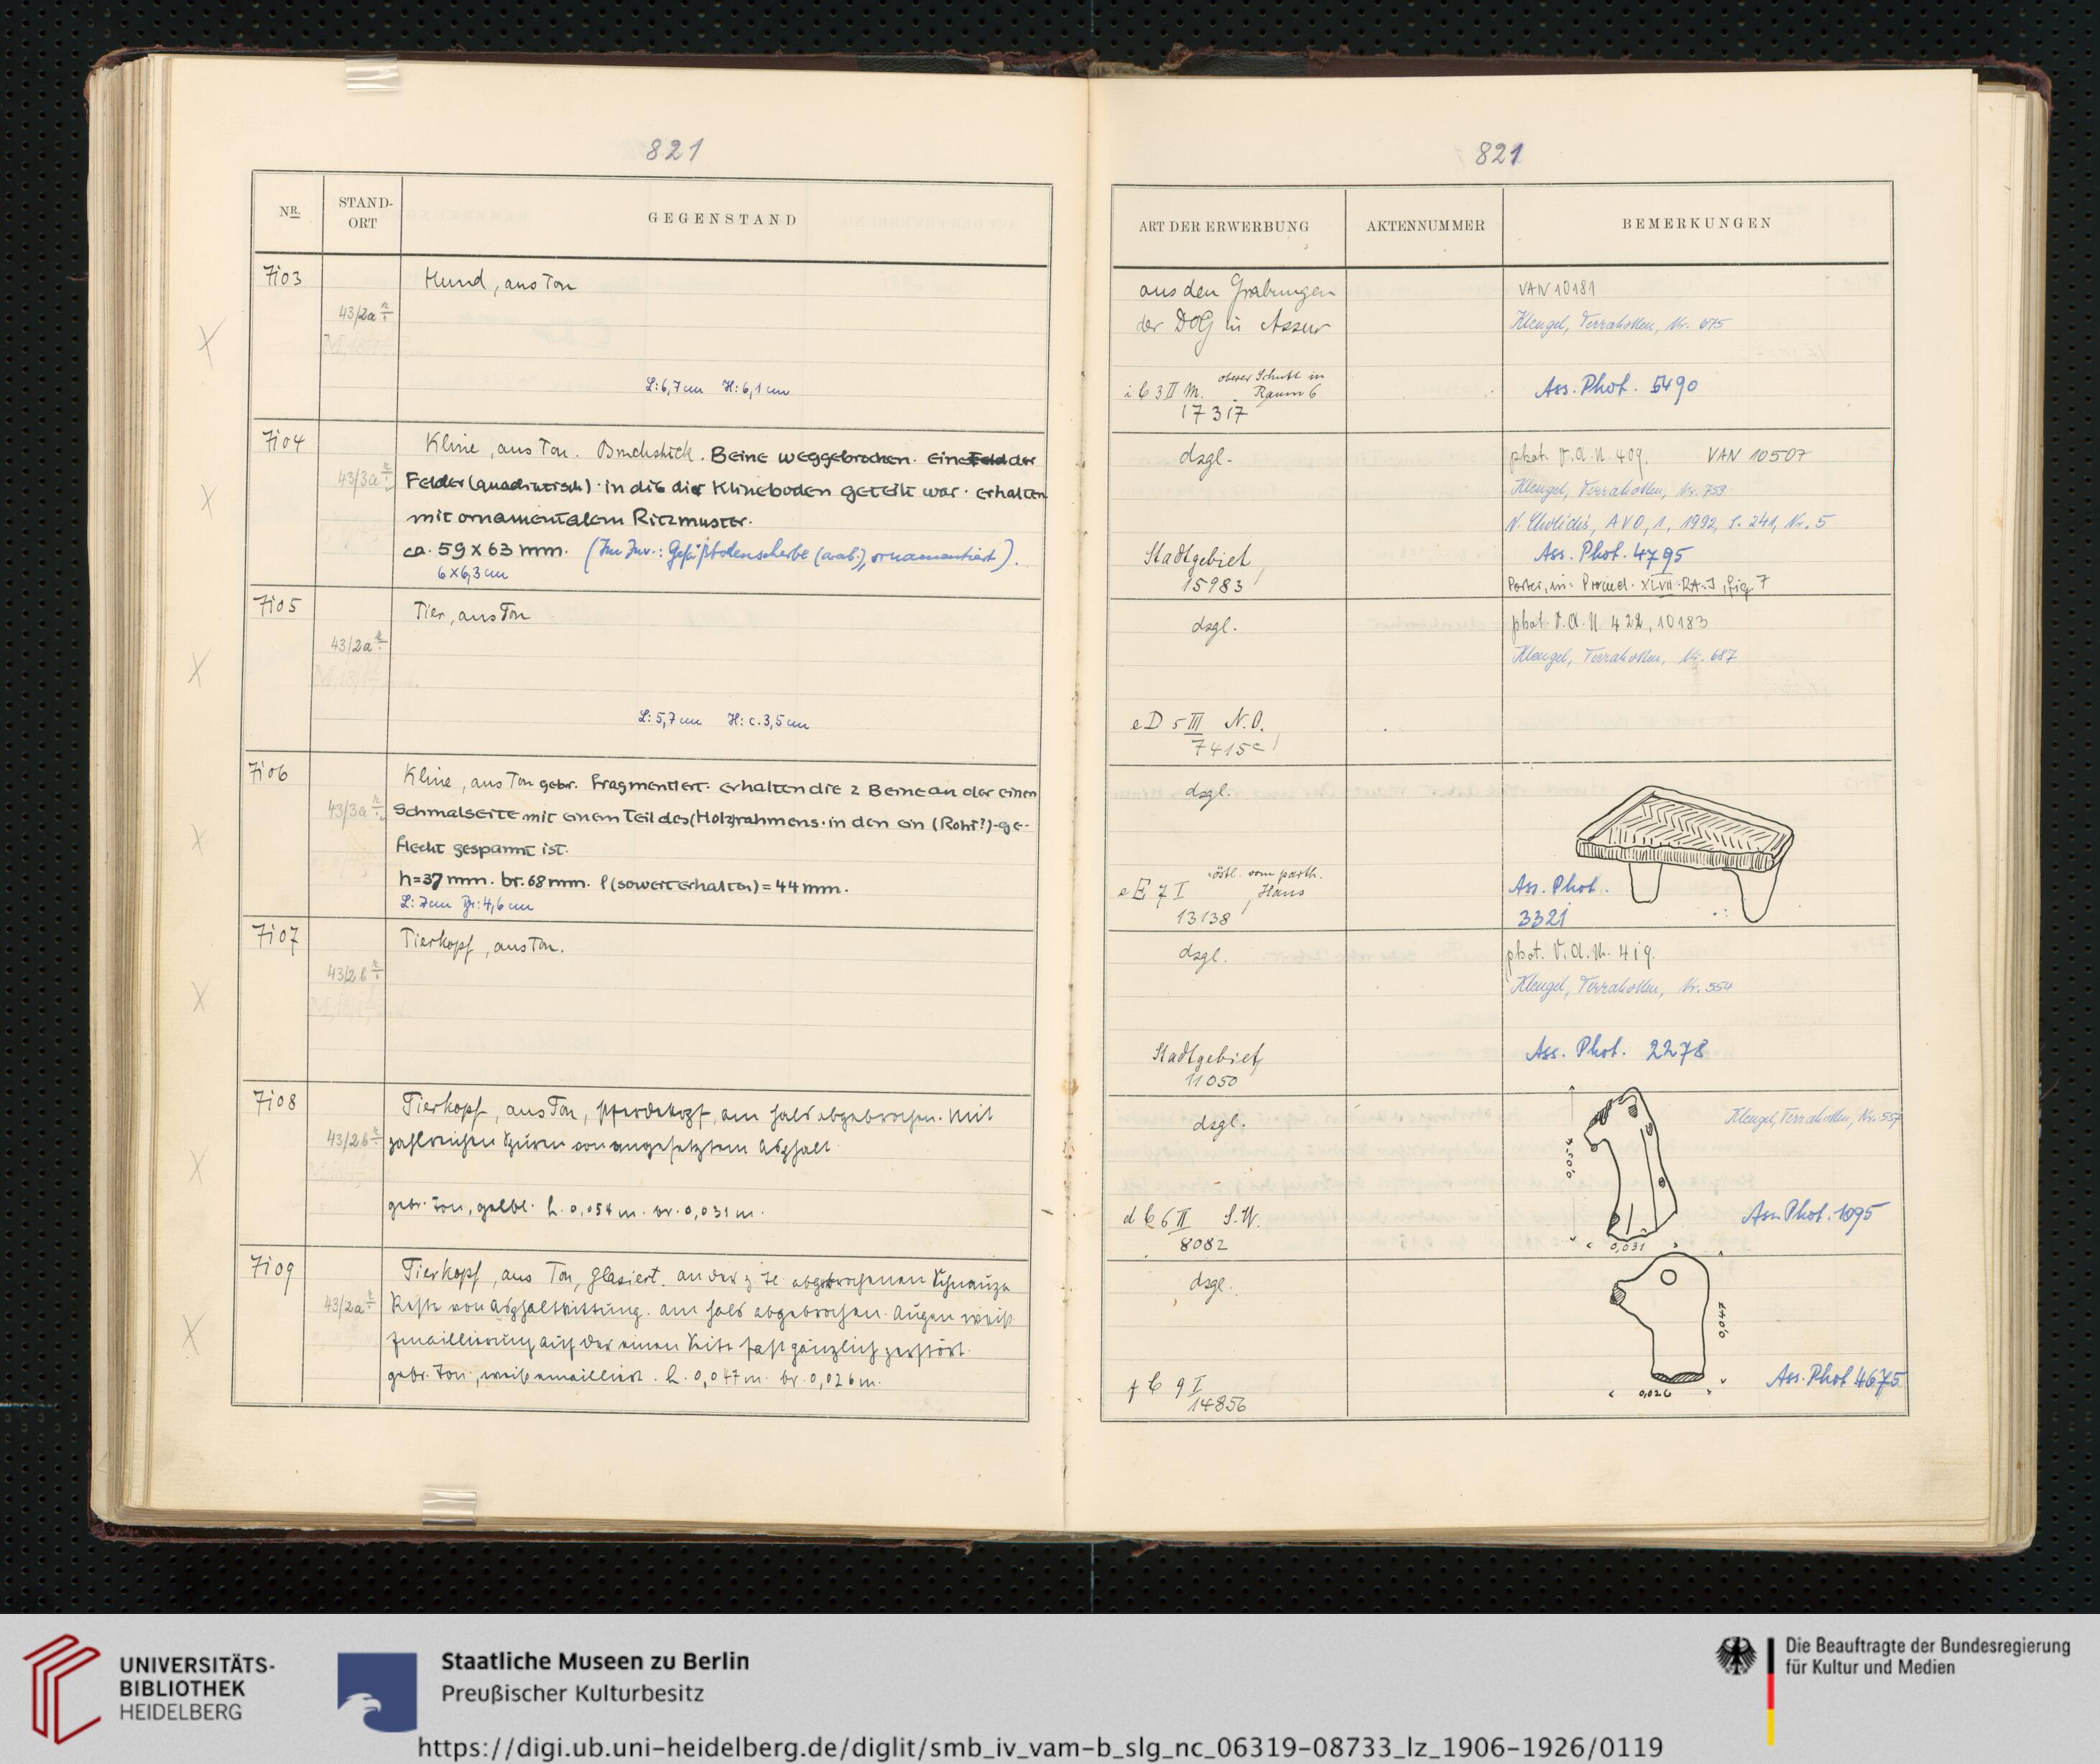 821
NR.
STAND-
ORT
GEGENSTAND
7103
43/2a
Hund, aus Ton
L: 6,7 cm H: 6,1 cm
7104
43/3a
Kline, aus Ton. Bruchstück. Beine weggebrochen. eines der
Felder (quadratisch). in die die Klineboden geteilt war. erhalten
mit ornamentalem Ritzmuster.
ca. 59 x 63 mm. (Im Inv.: Gefäßbodenscherbe (arab.), ornamentiert).
6 x 6,3 cm
7105
43/2a
Tier, aus Ton
L: 5,7 cm H: c. 3,5 cm
7106
43/3a
Kline, aus Ton gebr. Fragmentiert. erhalten die 2 Beine an der einen
Schmalseite mit einem Teil des (Holz)rahmens. in den ein (Rohr?)-ge-
flecht gespannt ist.
h = 37 mm. br. 68 mm. l (soweit erhalten) = 44 mm.
L: 7 cm Br: 4,6 cm
7107
43/2b
Tierkopf, aus Ton.
7108
43/2b
Tierkopf, aus Ton, Pferdekopf, am Hals abgebrochen. Mit
zahlreichen Spuren von angesetztem Asphalt.
gebr. Ton, gelbl. h. 0,054 m. br. 0,031 m.
7109
43/2a
Tierkopf, aus Ton, glasiert. an der z. T. abgebrochenen Schnauze
Reste von Asphaltkittung. am Hals abgebrochen. Augen weiß.
Emaillierung auf der einen Seite fast gänzlich zerstört.
gebr. Ton, weiß emailliert. h. 0,047 m. br. 0,026 m.
821
ART DER ERWERBUNG
AKTENNUMMER
BEMERKUNGEN
aus den Grabungen
der DOG in Assur
oberer Schutt in
i C 3 II M. Raum 6
17317
VAN 10181
Klengel, Terrakotten, Nr. 675
Ass. Phot. 5490
dsgl.
Stadtgebiet
15983
phot. V.A.N. 409. VAN 10507
Klengel, Terrakotten, Nr. 759
N. Cholidis, AVO, 1, 1992, S. 241, Nr. 5
Ass. Phot. 4795
Porter, in: Proceed. XLVII RAI, fig 7
dsgl.
e D 5 III N.O.
7415c
phot. V.A.N. 422, 10183
Klengel, Terrakotten, Nr. 687
dsgl.
östl. vom parth.
e E 7 I Haus
13138
Ass. Phot.
3321
dsgl.
Stadtgebiet
11050
phot. V.A.N. 419.
Klengel, Terrakotten, Nr. 554
Ass. Phot. 2278
dsgl.
d C 6 II S.W.
8082
Klengel, Terrakotten, Nr. 557
0,054
0,031
Ass. Phot. 1095
dsgl.
f C 9 I
14856
0,047
0,026
Ass. Phot 4675
UNIVERSITÄTS-
BIBLIOTHEK
HEIDELBERG
Staatliche Museen zu Berlin
Preußischer Kulturbesitz
Die Beauftragte der Bundesregierung
für Kultur und Medien
https://digi.ub.uni-heidelberg.de/diglit/smb_iv_vam-b_slg_nc_06319-08733_lz_1906-1926/0119